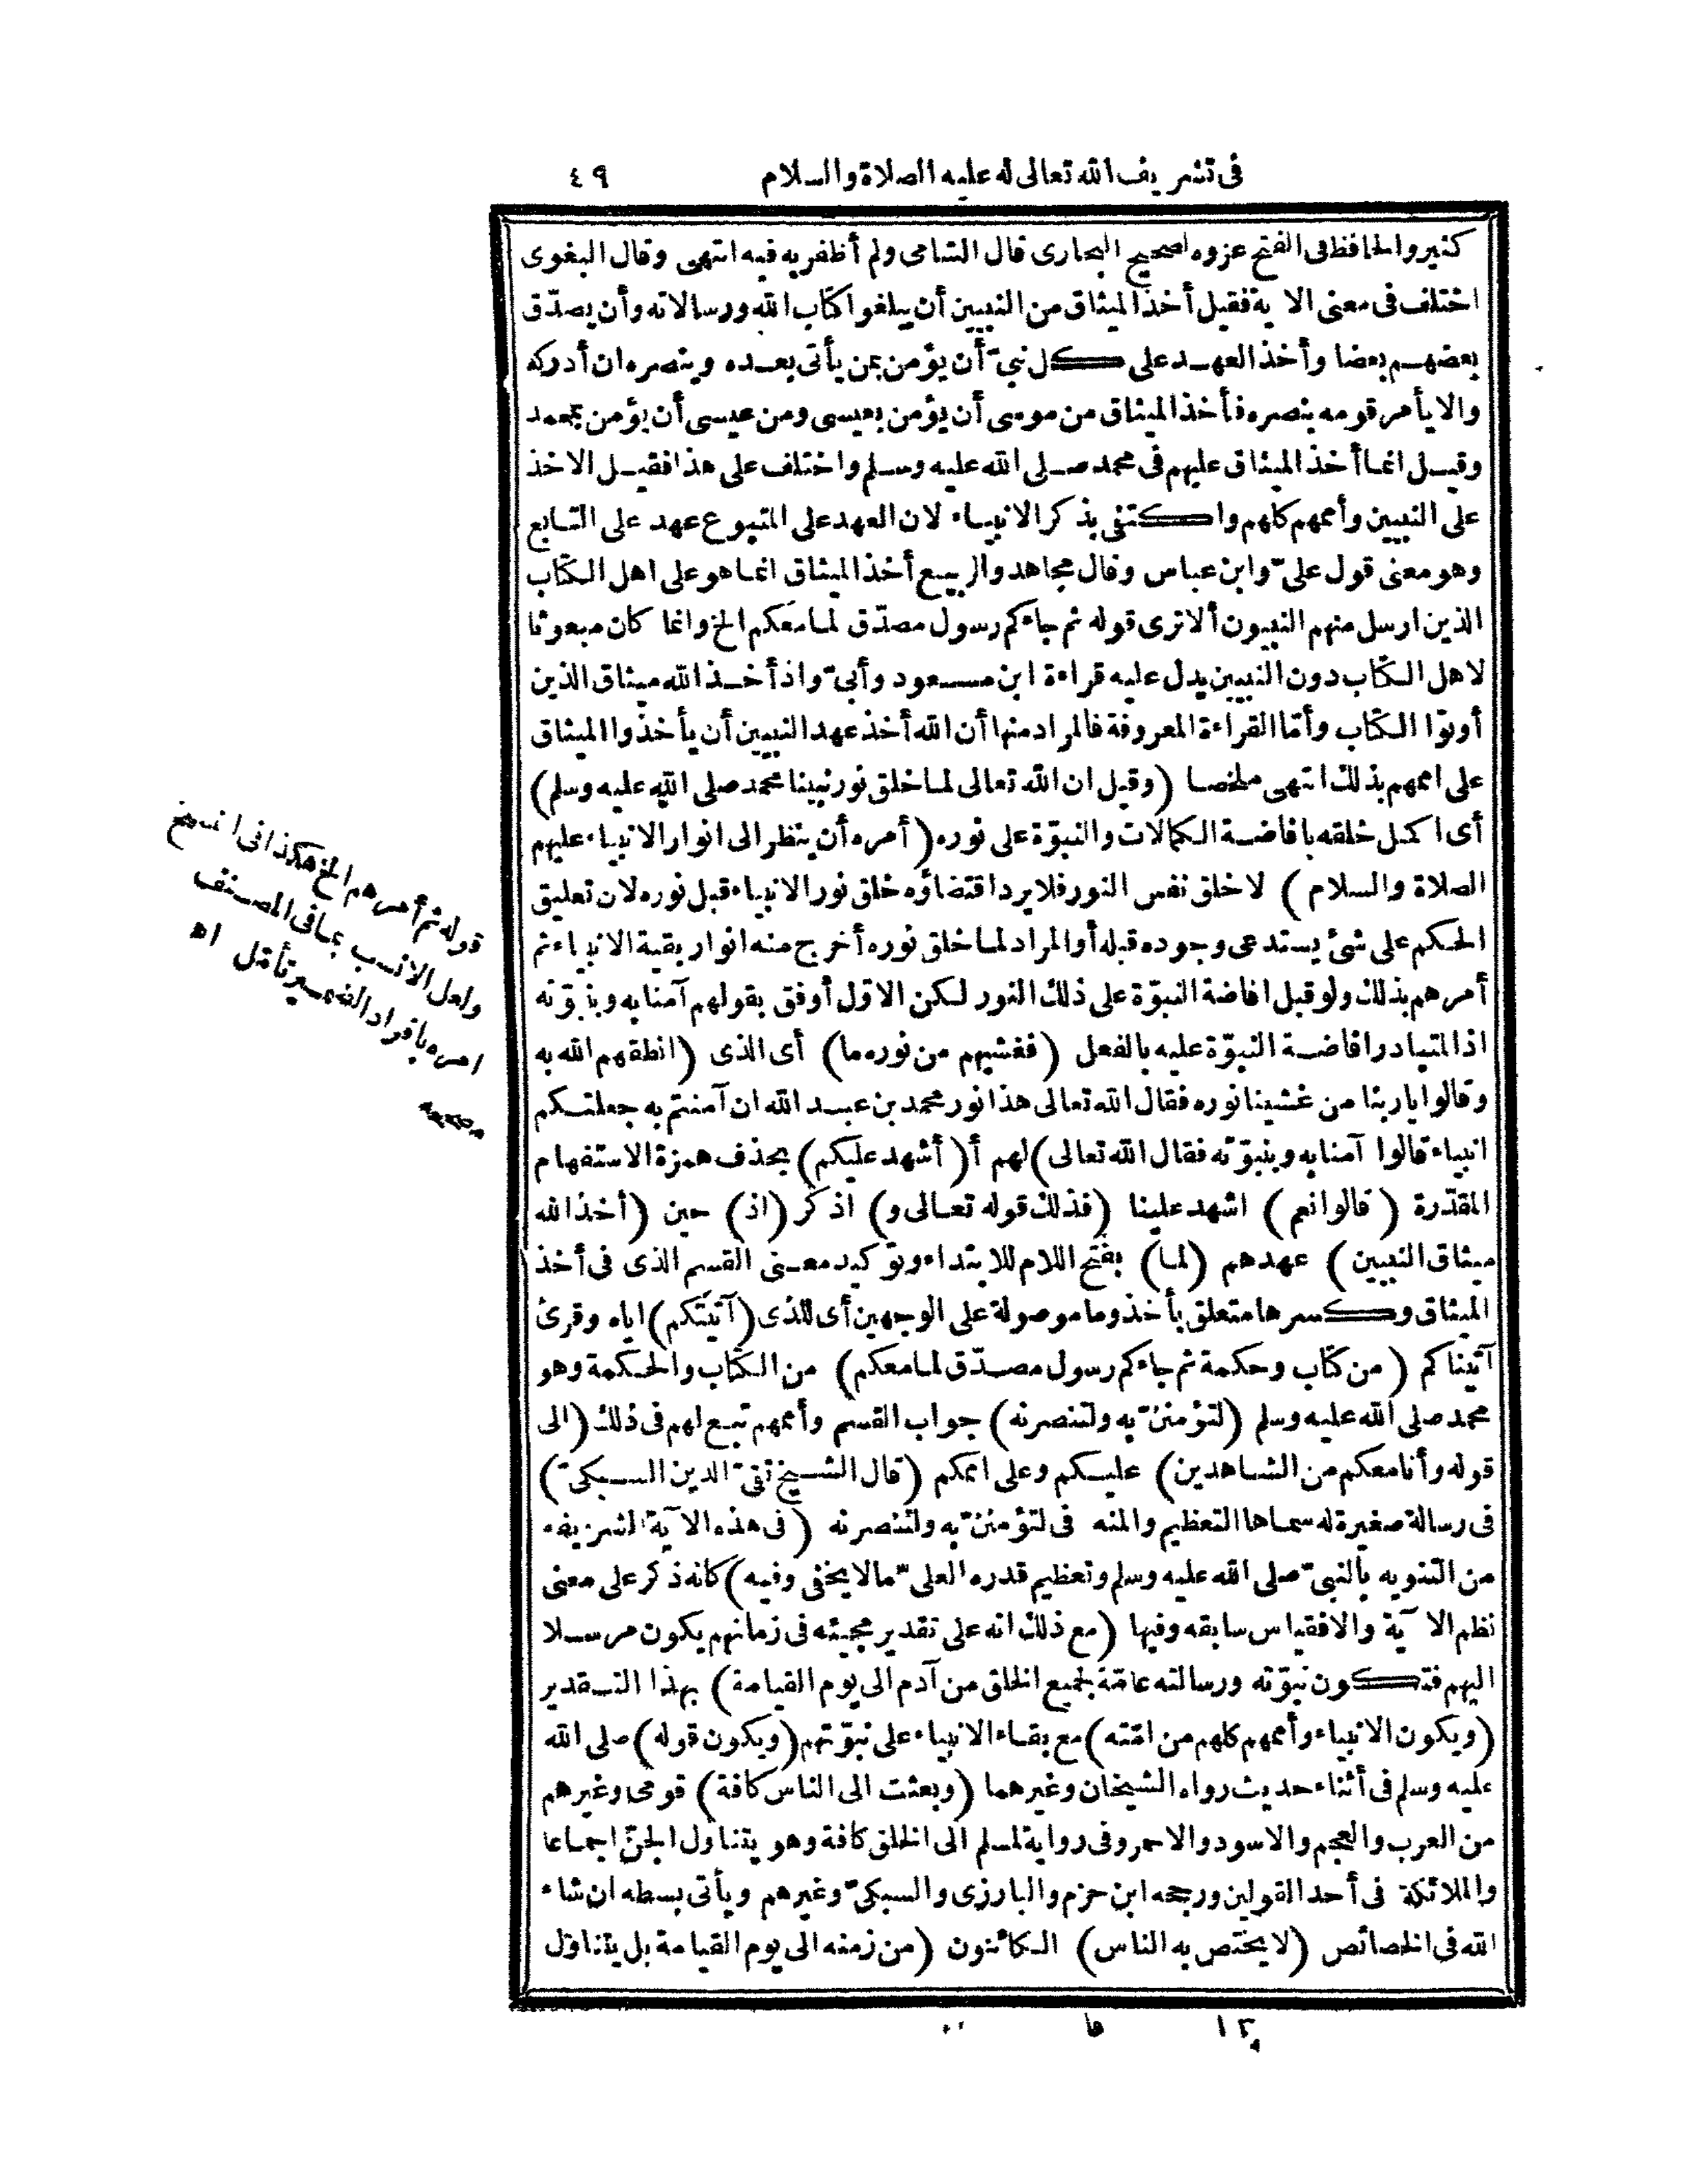 فى تشريف الله تعالى له عليه الصلاة والسلام ٤٩
كثير والحافظ فى الفتح عزوه لصحيح البخارى قال الشامى ولم أظفر به فيه انتهى وقال البغوى
اختلف فى معنى الآية فقيل أخذ الميثاق من النبيين أن يبلغوا كتاب الله ورسالاته وأن يصدّق
بعضهم بعضا وأخذ العهد على كل نبىّ أن يؤمن بمن يأتى بعده وينصره ان أدركه
والا يأمر قومه بنصره فأخذ الميثاق من موسى أن يؤمن بعيسى ومن عيسى أن يؤمن بمحمد
وقيل انما أخذ الميثاق عليهم فى محمد صلى الله عليه وسلم واختلف على هذا فقيل الاخذ
على النبيين وأممهم كلهم واكتفى بذكر الانبياء لان العهد على المتبوع عهد على التابع
وهو معنى قول علىّ وابن عباس وقال مجاهد والربيع أخذ الميثاق انما هو على اهل الكتاب
الذين ارسل منهم النبيون ألا ترى قوله ثم جاءكم رسول مصدّق لما معكم الخ وانما كان مبعوثا
لاهل الكتاب دون النبيين يدل عليه قراءة ابن مسعود وأبىّ واذ أخذ الله ميثاق الذين
أوتوا الكتاب وأمّا القراءة المعروفة فالمراد منها أن الله أخذ عهد النبيين أن يأخذوا الميثاق
على اممهم بذلك انتهى ملخصا (وقيل ان الله تعالى لما خلق نور نبينا محمد صلى الله عليه وسلم)
أى اكمل خلقه بافاضة الكمالات والنبوّة على نوره (أمره أن ينظر الى انوار الانبياء عليهم
الصلاة والسلام) لا خلق نفس النور فلا يرد اقتضاؤه خلق نور الانبياء قبل نوره لان تعليق
الحكم على شئ يستدعى وجوده قبله أو المراد لما خلق نوره أخرج منه انوار بقية الانبياء ثم
أمرهم بذلك ولو قبل افاضة النبوّة على ذلك النور لكن الاوّل أوفق بقولهم آمنا به وبنبوّته
اذ المتبادر افاضة النبوّة عليه بالفعل (فغشيهم من نوره ما) أى الذى (انطقهم الله به
وقالوا يا ربنا من غشينا نوره فقال الله تعالى هذا نور محمد بن عبد الله ان آمنتم به جعلتكم
انبياء قالوا آمنا به وبنبوّته فقال الله تعالى) لهم أ(أشهد عليكم) بحذف همزة الاستفهام
المقدّرة (قالوا نعم) اشهد علينا (فذلك قوله تعالى و) اذكر (اذ) حين (أخذ الله
ميثاق النبيين) عهدهم (لما) بفتح اللام للابتداء وتوكيد معنى القسم الذى فى أخذ
الميثاق وكسرها متعلق بأخذ وما موصولة على الوجهين أى للذى (آتيتكم) اياه وقرئ
آتيناكم (من كتاب وحكمة ثم جاءكم رسول مصدّق لما معكم) من الكتاب والحكمة وهو
محمد صلى الله عليه وسلم (لتؤمننّ به ولتنصرنه) جواب القسم وأممهم تبع لهم فى ذلك (الى
قوله وأنا معكم من الشاهدين) عليكم وعلى اممكم (قال الشيخ تقىّ الدين السبكىّ)
فى رسالة صغيرة له سماها التعظيم والمنه فى لتؤمننّ به ولتنصرنه (فى هذه الآية الشريفه
من التنويه بالنبىّ صلى الله عليه وسلم وتعظيم قدره العلىّ ما لا يخفى وفيه) كانه ذكر على معنى
نظم الآية والا فقياس سابقه وفيها (مع ذلك انه على تقدير مجيئه فى زمانهم يكون مرسلا
اليهم فتكون نبوّته ورسالته عامّة لجميع الخلق من آدم الى يوم القيامة) بهذا التقدير
(ويكون الانبياء وأممهم كلهم من امّته) مع بقاء الانبياء على نبوّتهم (ويكون قوله) صلى الله
عليه وسلم فى أثناء حديث رواه الشيخان وغيرهما (وبعثت الى الناس كافة) قومى وغيرهم
من العرب والعجم والاسود والاحمر وفى رواية لمسلم الى الخلق كافة وهو يتناول الجنّ اجماعا
والملائكة فى أحد القولين ورجحه ابن حزم والبارزى والسبكىّ وغيرهم ويأتى بسطه ان شاء
الله فى الخصائص (لا يختص به الناس) الكائنون (من زمنه الى يوم القيامة بل يتناول
قوله ثم أمرهم الخ هكذا فى النسخ
ولعل الانسب بما فى المصنف
امره بافراد الضمير تأمّل اه
مصححه
١٣ قا